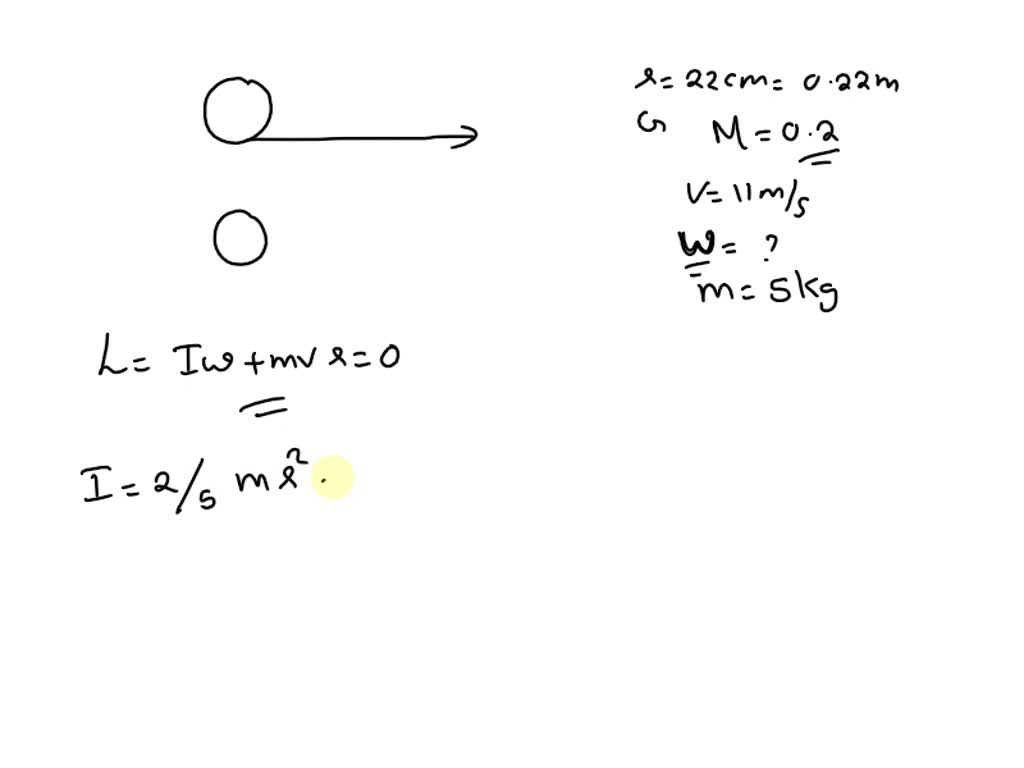 r = 22cm = 0.22m
G M = 0.2
V = 11 m/s
ω = ?
m = 5kg
L = Iω + mvr = 0
I = 2/5 mr² .